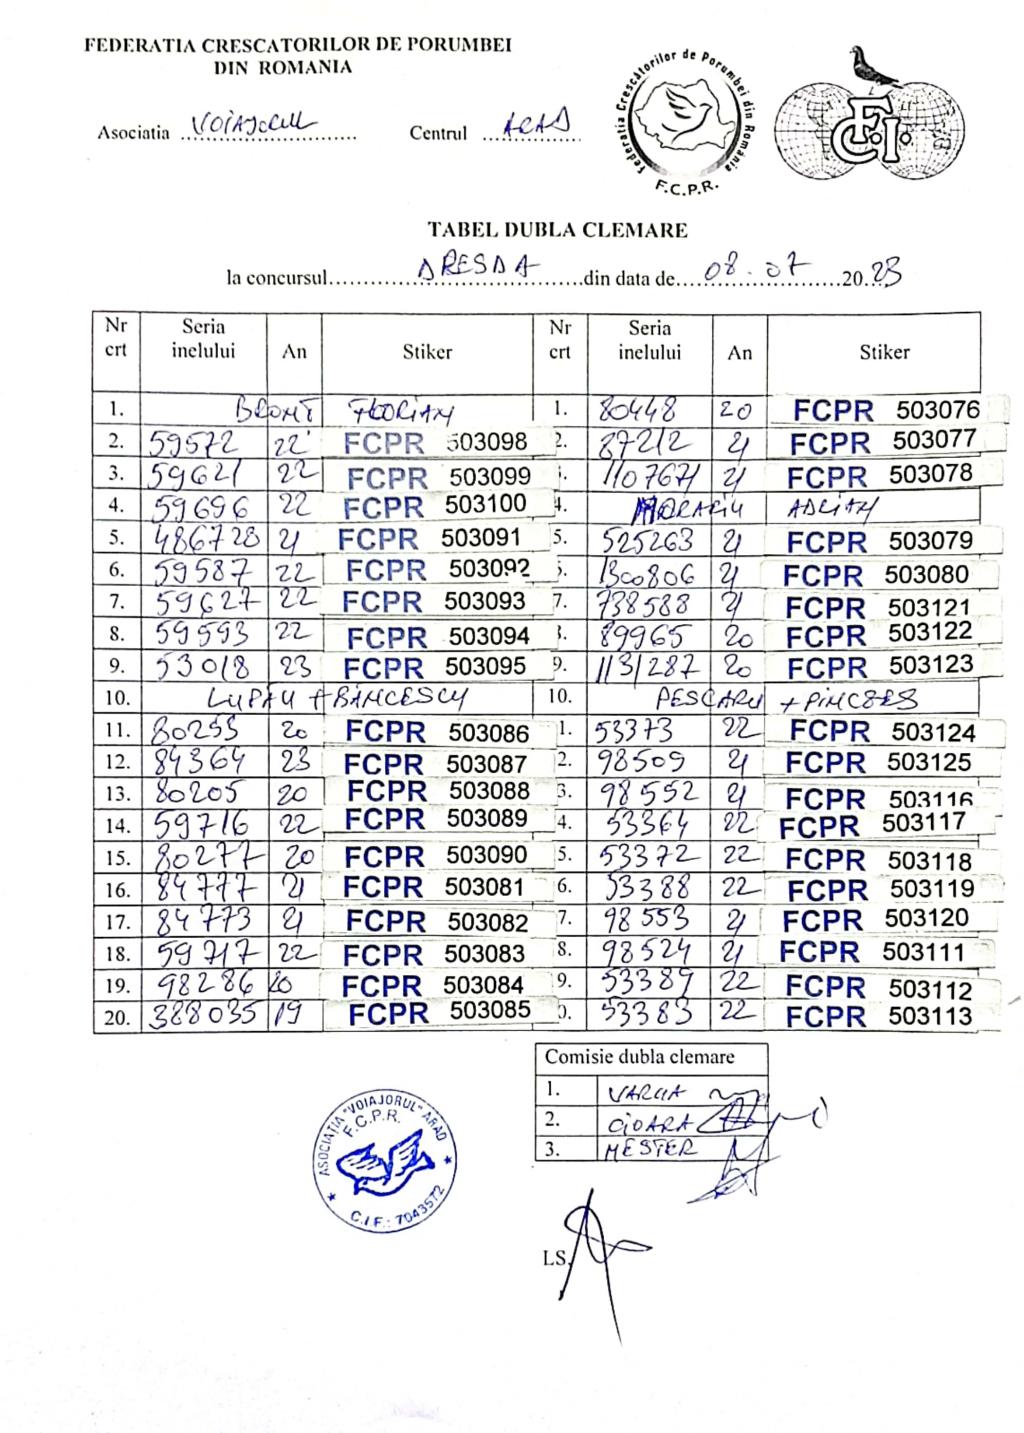 FEDERATIA CRESCATORILOR DE PORUMBEI
DIN ROMANIA
Asociatia VOIAJORUL Centrul ARAD
Federatia Crescătorilor de Porumbei din România
F.C.P.R.
F.C.I.
TABEL DUBLA CLEMARE
la concursul DRESDA din data de 08.07 2023
Nr crt Seria inelului An Stiker Nr crt Seria inelului An Stiker
1. BRONT FLORIAN 1. 80448 20 FCPR 503076
2. 59572 22 FCPR 503098 2. 87212 21 FCPR 503077
3. 59621 22 FCPR 503099 1107671 21 FCPR 503078
4. 59696 22 FCPR 503100 4. MORARIU ADRIAN
5. 486728 21 FCPR 503091 5. 525263 21 FCPR 503079
6. 59587 22 FCPR 503092 1300806 21 FCPR 503080
7. 59627 22 FCPR 503093 7. 738588 21 FCPR 503121
8. 59593 22 FCPR 503094 89965 20 FCPR 503122
9. 53018 23 FCPR 503095 9. 1131287 20 FCPR 503123
10. LUPAU + BANCESCU 10. PESCARU + PINCSES
11. 80255 20 FCPR 503086 1. 53373 22 FCPR 503124
12. 84364 23 FCPR 503087 2. 98509 21 FCPR 503125
13. 80205 20 FCPR 503088 3. 98552 21 FCPR 503116
14. 59716 22 FCPR 503089 4. 53364 22 FCPR 503117
15. 80277 20 FCPR 503090 5. 53372 22 FCPR 503118
16. 84777 21 FCPR 503081 6. 53388 22 FCPR 503119
17. 84773 21 FCPR 503082 7. 98553 21 FCPR 503120
18. 59717 22 FCPR 503083 8. 98524 21 FCPR 503111
19. 98286 20 FCPR 503084 9. 53389 22 FCPR 503112
20. 388035 19 FCPR 503085 0. 53383 22 FCPR 503113
Comisie dubla clemare
1. VARGA
2. CIOARA
3. MESTER
ASOCIATIA "VOIAJORUL" ARAD
F.C.P.R.
C.I.F.: 7043572
LS.